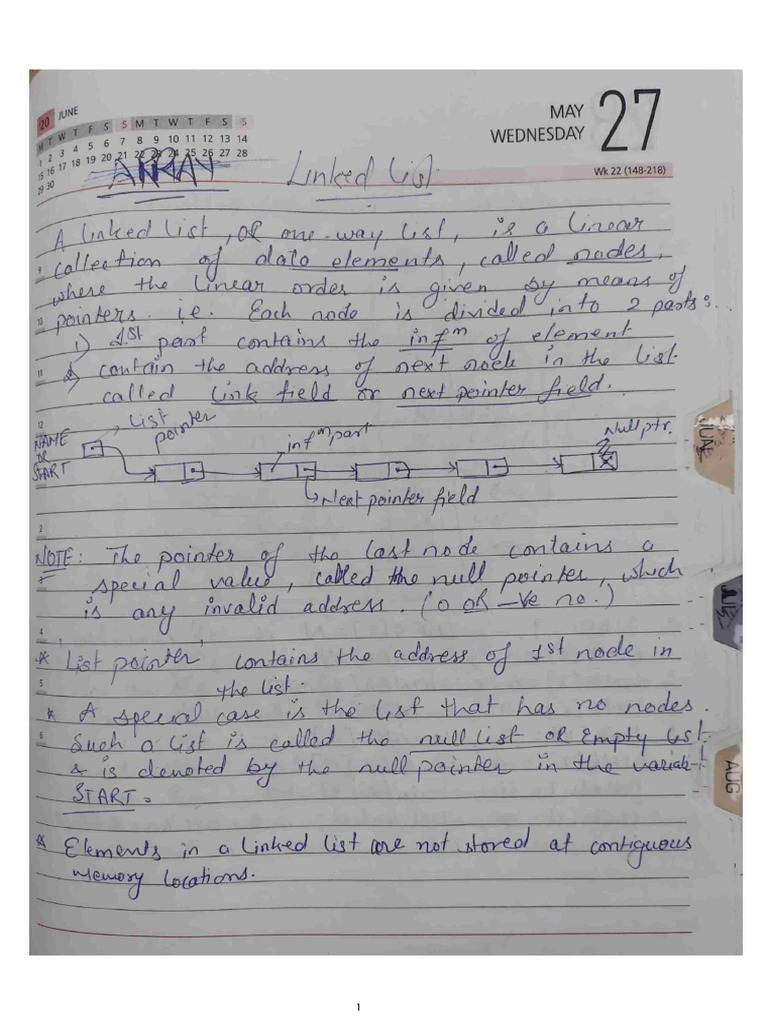 20 JUNE
M T W T F S S M T W T F S S
1 2 3 4 5 6 7 8 9 10 11 12 13 14
15 16 17 18 19 20 21 22 23 24 25 26 27 28
29 30
MAY
WEDNESDAY
27
Wk 22 (148-218)
Linked List
A linked list, OR one-way list, is a linear
collection of data elements, called nodes,
where the linear order is given by means of
pointers. i.e. Each node is divided into 2 parts:
1) 1st part contains the infm of element
2) contain the address of next node in the list
called link field or next pointer field.
NAME
OR
START
List
pointer
infm part
Null ptr.
Next pointer field
NOTE: The pointer of the last node contains a
special value, called the null pointer, which
is any invalid address. (0 OR -ve no.)
* 'List pointer' contains the address of 1st node in
the list.
* A special case is the list that has no nodes.
Such a list is called the null list OR Empty list
& is denoted by the null pointer in the variab-
START.
* Elements in a linked list are not stored at contiguous
memory locations.
9
10
11
12
2
3
4
5
6
JUN
JUL
AUG
1